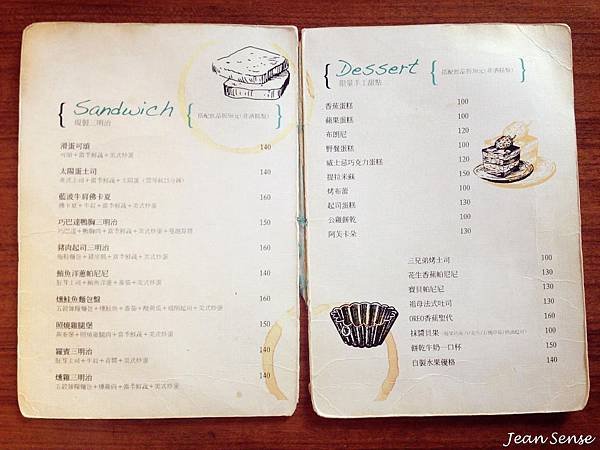 Sandwich
現製三明治
滑蛋可頌 140
可頌+當季鮮蔬+美式炒蛋
太陽蛋土司 140
藍波牛肩佛卡夏 160
佛卡夏+牛肩+當季鮮蔬+美式炒蛋
巧巴達鴨胸三明治 150
豬肉起司三明治 160
鮪魚洋蔥帕尼尼 140
燻鮭魚麵包盤 160
照燒雞腿堡 150
羅賓三明治 140
燻雞三明治 140
五穀雜糧麵包+燻雞肉+當季鮮蔬+美式炒蛋
Dessert
限量手工甜點
香蕉蛋糕 100
蘋果蛋糕 100
布朗尼 100
野餐蛋糕 100
威士忌巧克力蛋糕 120
提拉米蘇 150
烤布蕾 100
起司蛋糕 130
公雞餅乾 90
阿芙卡朵 130
三兄弟烤土司 100
花生香蕉帕尼尼 130
寶貝帕尼尼 130
祖母法式吐司 130
OREO香蕉聖代 130
抹醬貝果 100
餅乾牛奶一口杯 150
自製水果優格 140
Jean Sense